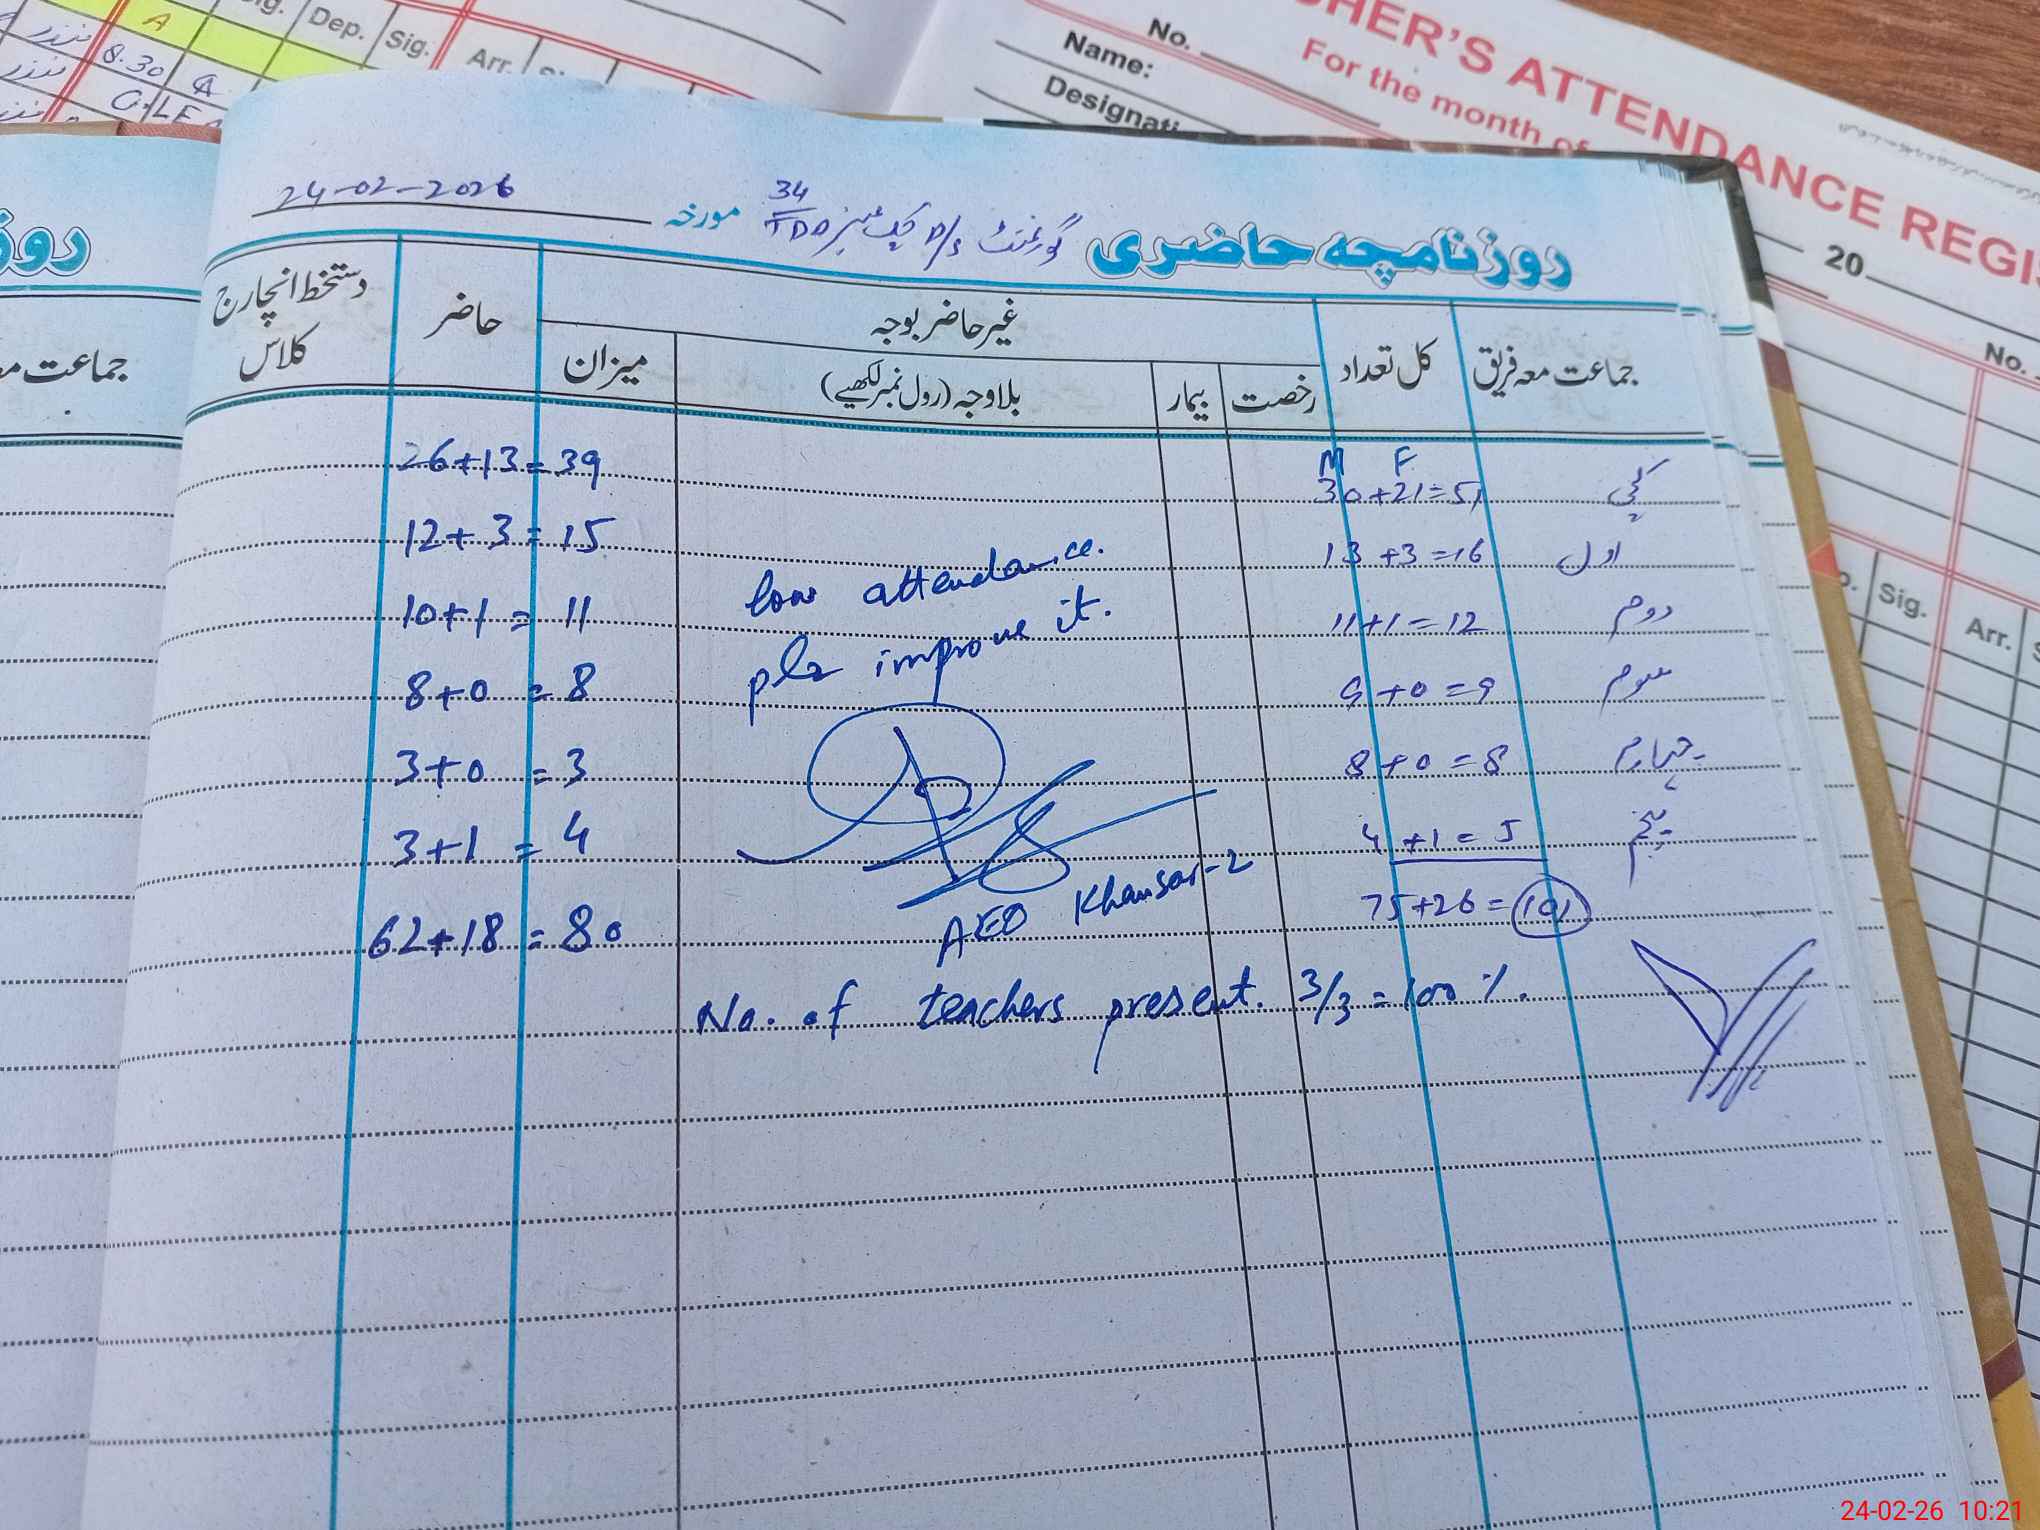 Sig. Dep. Sig. Arr.
A
8.30
C.LEA
No.
Name:
Designati
HER'S ATTENDANCE REGIS
For the month of
20
No.
Sig.
Arr.
روزنامچہ حاضری گورنمنٹ P/S چک نمبر 34/TDA مورخہ 24-02-2026
جماعت معہ فریق کل تعداد غیر حاضر بوجہ حاضر دستخط انچارج کلاس
رخصت بیمار بلاوجہ (رول نمبر لکھیے) میزان
M F
کچی 30+21=51 26+13=39
اول 13+3=16 12+3=15
دوم 11+1=12 10+1=11
سوم 9+0=9 8+0=8
چہارم 8+0=8 3+0=3
پنجم 4+1=5 3+1=4
75+26=101 62+18=80
low attendance.
plz improve it.
AEO Khansar-2
No. of teachers present. 3/3=100%.
جماعت
24-02-26 10:21